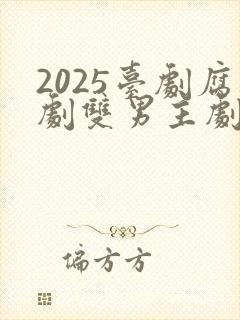 2025臺劇腐
劇雙男主劇
偏方方